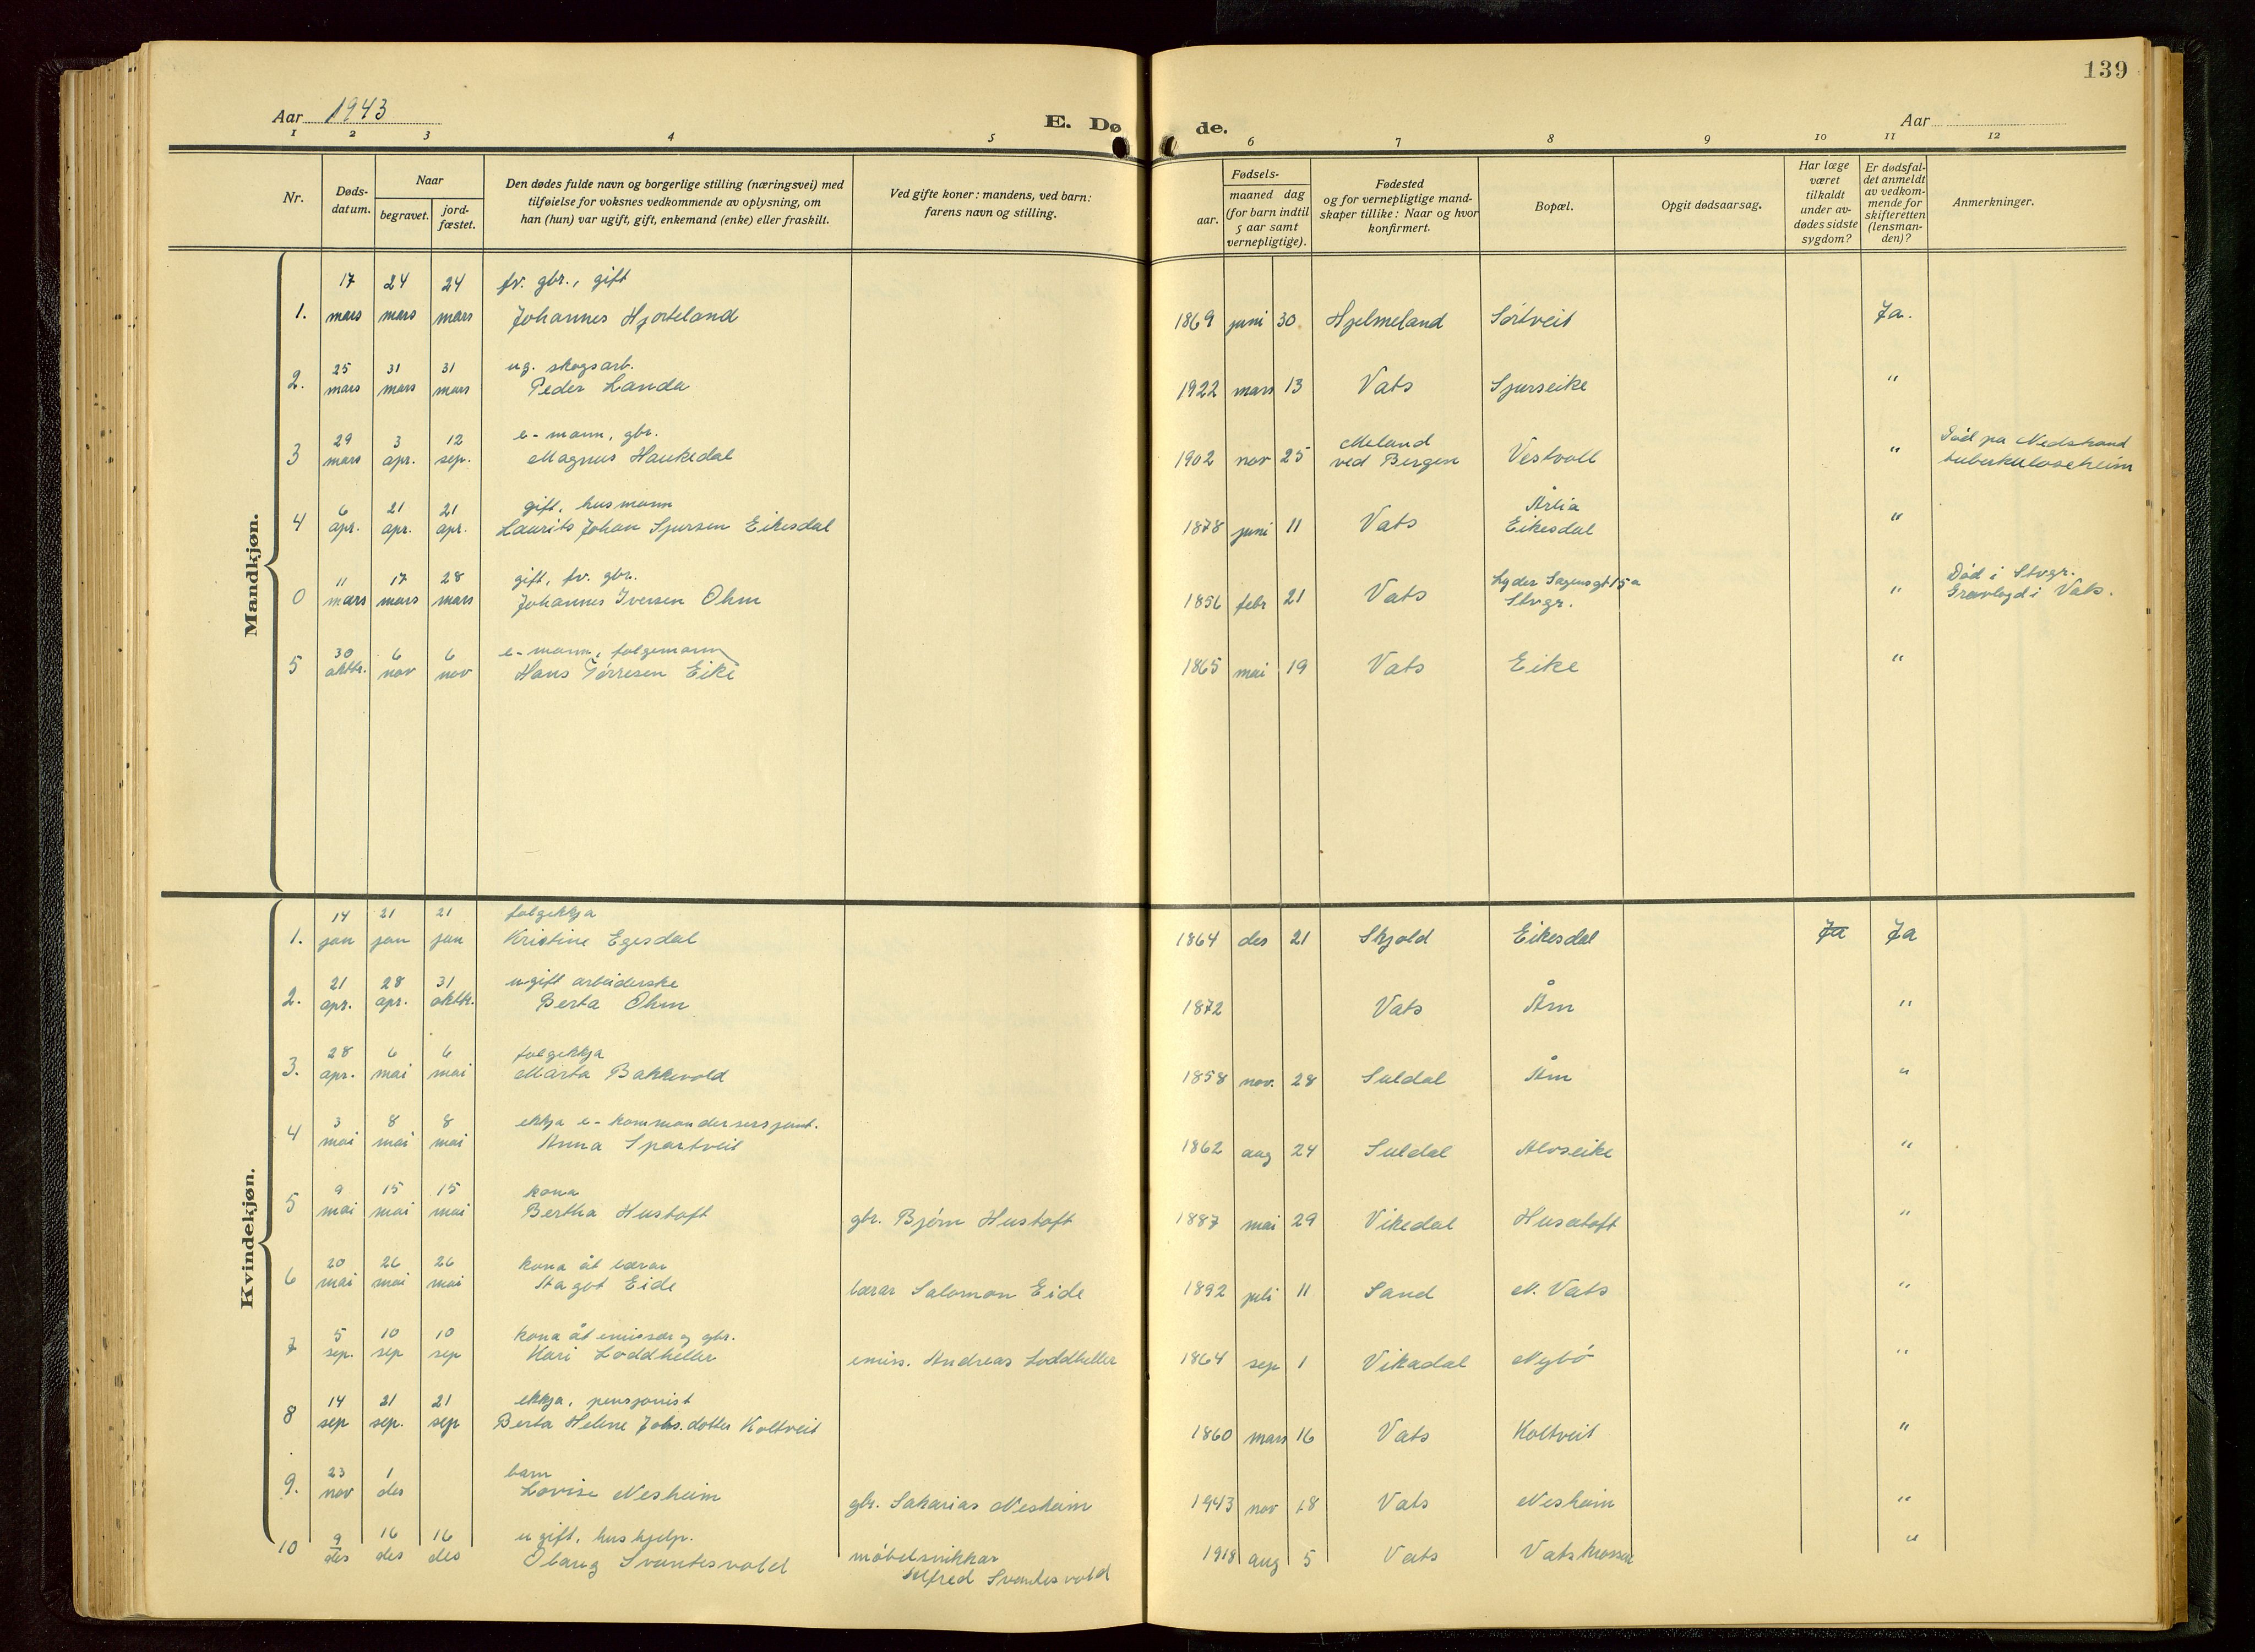 139
Aar 1943
E. Dø de.
Aar
1 2 3 4 5 6 7 8 9 10 11 12
Nr.
Døds-
datum.
Naar
begravet.
jord-
fæstet.
Den dødes fulde navn og borgerlige stilling (næringsvei) med
tilføielse for voksnes vedkommende av oplysning, om
han (hun) var ugift, gift, enkemand (enke) eller fraskilt.
Ved gifte koner: mandens, ved barn:
farens navn og stilling.
Fødsels-
aar.
maaned dag
(for barn indtil
5 aar samt
vernepligtige).
Fødested
og for vernepligtige mand-
skaper tillike: Naar og hvor
konfirmert.
Bopæl.
Opgit dødsaarsag.
Har læge
været
tilkaldt
under av-
dødes sidste
sygdom?
Er dødsfal-
det anmeldt
av vedkom-
mende for
skifteretten
(lensman-
den)?
Anmerkninger.
Mandkjøn.
17 24 24 fv. gbr., gift
1. mars mars mars Johannes Hjorteland 1869 juni 30. Hjelmeland Sørtveit Ja.
25 31 31 ug. skogsarb.
2. mars mars mars Peder Landa 1922 mars 13 Vats Sjurseike "
29 3 12 e-mann, gbr. Meland Død på Nedstrand
3 mars apr. sep. Magnus Haukedal 1902 nov 25 ved Bergen Vestvoll " tuberkuloseheim
6 21 21 gift, husmann Årlia
4 apr. apr. apr. Laurits Johan Sjursen Eikesdal 1878 juni 11 Vats Eikesdal "
11 17 28 gift, fv. gbr. Lyder Sagensgt 15a Død i Stvgr.
0 mars mars mars Johannes Iversen Ohm 1856 febr 21 Vats Stvgr. " Gravlagd i Vats.
30 6 6 e-mann, folgemann
5 oktbr. nov nov Hans Tørresen Eike 1865 mai 19 Vats Eike "
Kvindekjøn.
14 21 21 folgekkja
1. jan jan jan Kristine Egesdal 1864 des 21 Skjold Eikesdal Ja Ja
21 28 31 ugift arbeiderske
2. apr. apr. oktbr. Berta Ohm 1872 Vats Åm "
28 6 6 folgekkja
3. apr. mai mai Marta Bakkevold 1858 nov. 28 Suldal Åm "
3 8 8 ekkja e-kommandersersjant.
4 mai mai mai Anna Spartveit 1862 aug 24 Suldal Alvseike "
9 15 15 kona
5 mai mai mai Bertha Hustoft gbr. Bjørn Hustoft 1887 mai 29 Vikedal Husatoft "
20 26 26 kona åt lærar
6 mai mai mai Aagot Eide lærar Salomon Eide 1892 juli 11 Sand N. Vats "
5 10 10 kona åt emissær og gbr.
7 sep. sep sep Kari Loddheller emiss. Andreas Loddheller 1864 sep 1 Vikadal Nybø "
14 21 21 ekkja, pensjonist
8 sep sep. sep Berta Helene Johs.dotter Koltveit 1860 mars 16 Vats Koltveit "
23 1 barn
9. nov des Lovise Nesheim gbr. Sakarias Nesheim 1943 nov 18 Vats Nesheim "
9 16 16 ugift, hushjelp.
10 des des des Obaug Svantesvold møbelsnikkar 1918 aug 5 Vats Vatskrossen "
Alfred Svantesvold